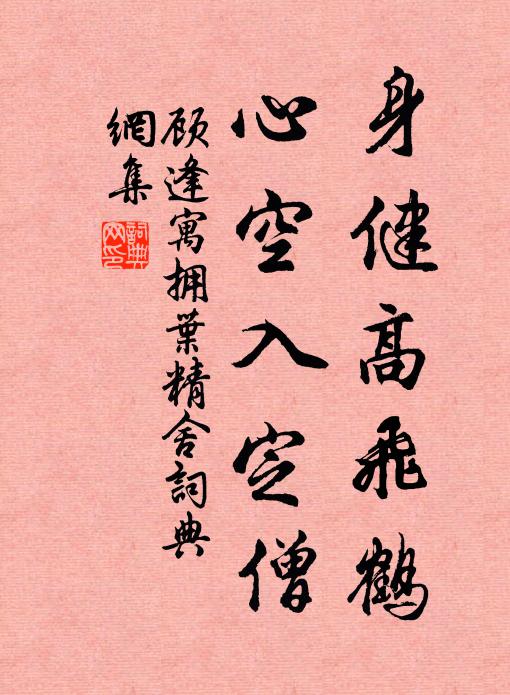 身健高飛鶴
心空入定僧
顾逢寓拥葉精舍詞典
網集
詞典
网印